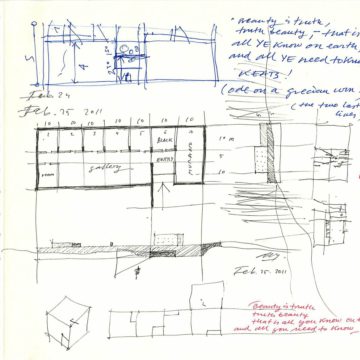 "Beauty is truth,
truth beauty, – that is
all YE know on earth,
and all YE need to know
KEATS!
(ode on a grecian urn.
(the two last
lines)
5
4
Feb 24
Feb. 25 2011
10 10 10 10 10 10 10
1 2 3 4 5 6
BLACK
10 m
5
room
gallery
10
Feb. 25. 2011
Beauty is truth
truth beauty
that is all you know on
and all you need to know